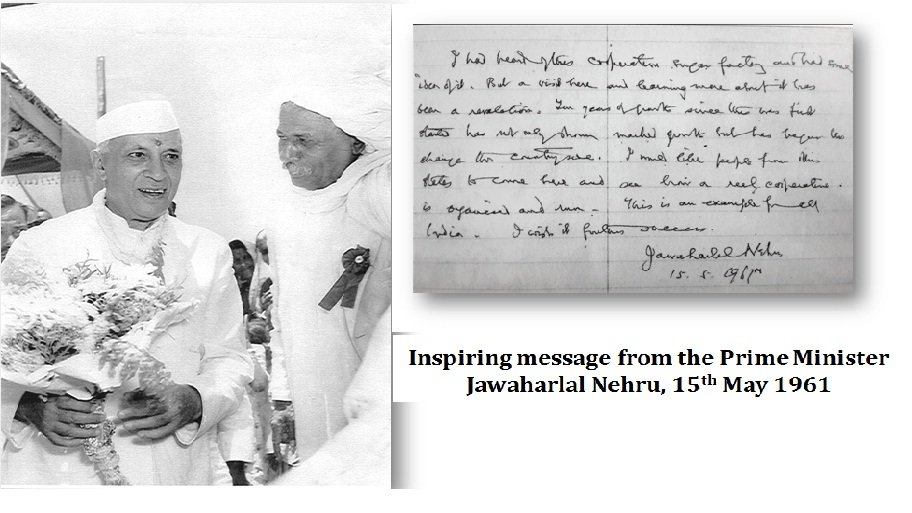 I had heard of this cooperative sugar factory and had some
idea of it. But a visit here and learning more about it has
been a revelation. Ten years of growth since this was first
started has not only shown marked growth but has begun to
change the countryside. I would like people from other
states to come here and see how a real cooperative
is organised and run. This is an example for all
India. I wish it further success.
Jawaharlal Nehru
15. 5. 1961
Inspiring message from the Prime Minister
Jawaharlal Nehru, 15th May 1961